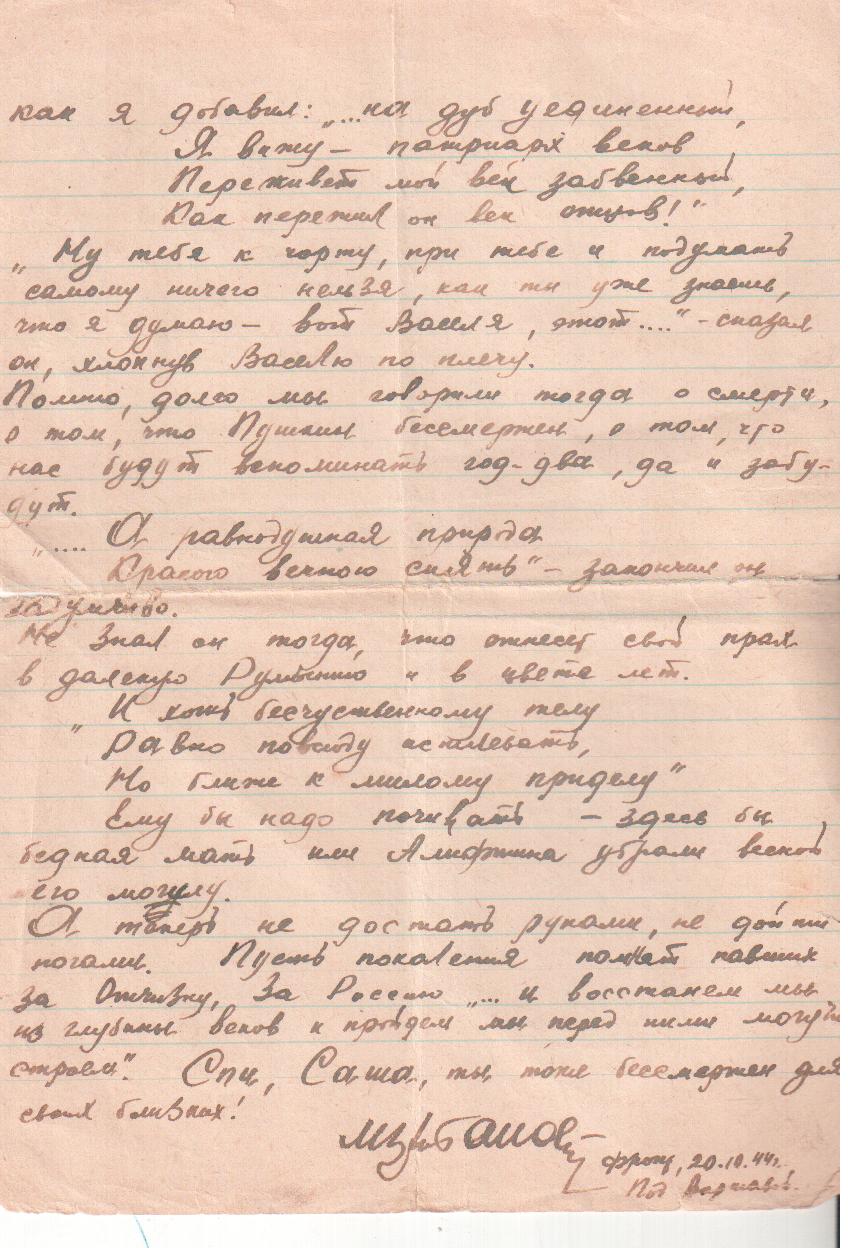 как я добавил: „...на дуб уединенный,
Я вижу – патриарх веков
Переживет мой век забвенный,
Как пережил он век отцов!"
„Ну тебя к чорту, при тебе и подумать
самому ничего нельзя, как ты уже знаешь,
что я думаю – вот Василя, этот...." – сказал
он, хлопнув Василю по плечу.
Помню, долго мы говорили тогда о смерти,
о том, что Пушкин бессмертен, о том, что
нас будут вспоминать год-два, да и забу-
дут.
„.... А равнодушная природа
Красою вечною сиять" – закончил он
задумчиво.
Не знал он тогда, что отнесет свой прах
в далекую Румынию и в цвете лет.
„И хоть бесчуственному телу
Равно повсюду истлевать,
Но ближе к милому приделу"
Ему бы надо почивать – здесь бы
бедная мать или Алифтина убрали весной
его могилу.
А теперь не достать руками, не дойти
ногами. Пусть поколения помнят павших
за Отчизну, За Россию „... и восстанем мы
из глубины веков и пройдем мы перед ними могучим
строем". Спи, Саша, ты тоже бессмертен для
своих близких!
Фронт, 20.10.44г.
Под Варшавой.